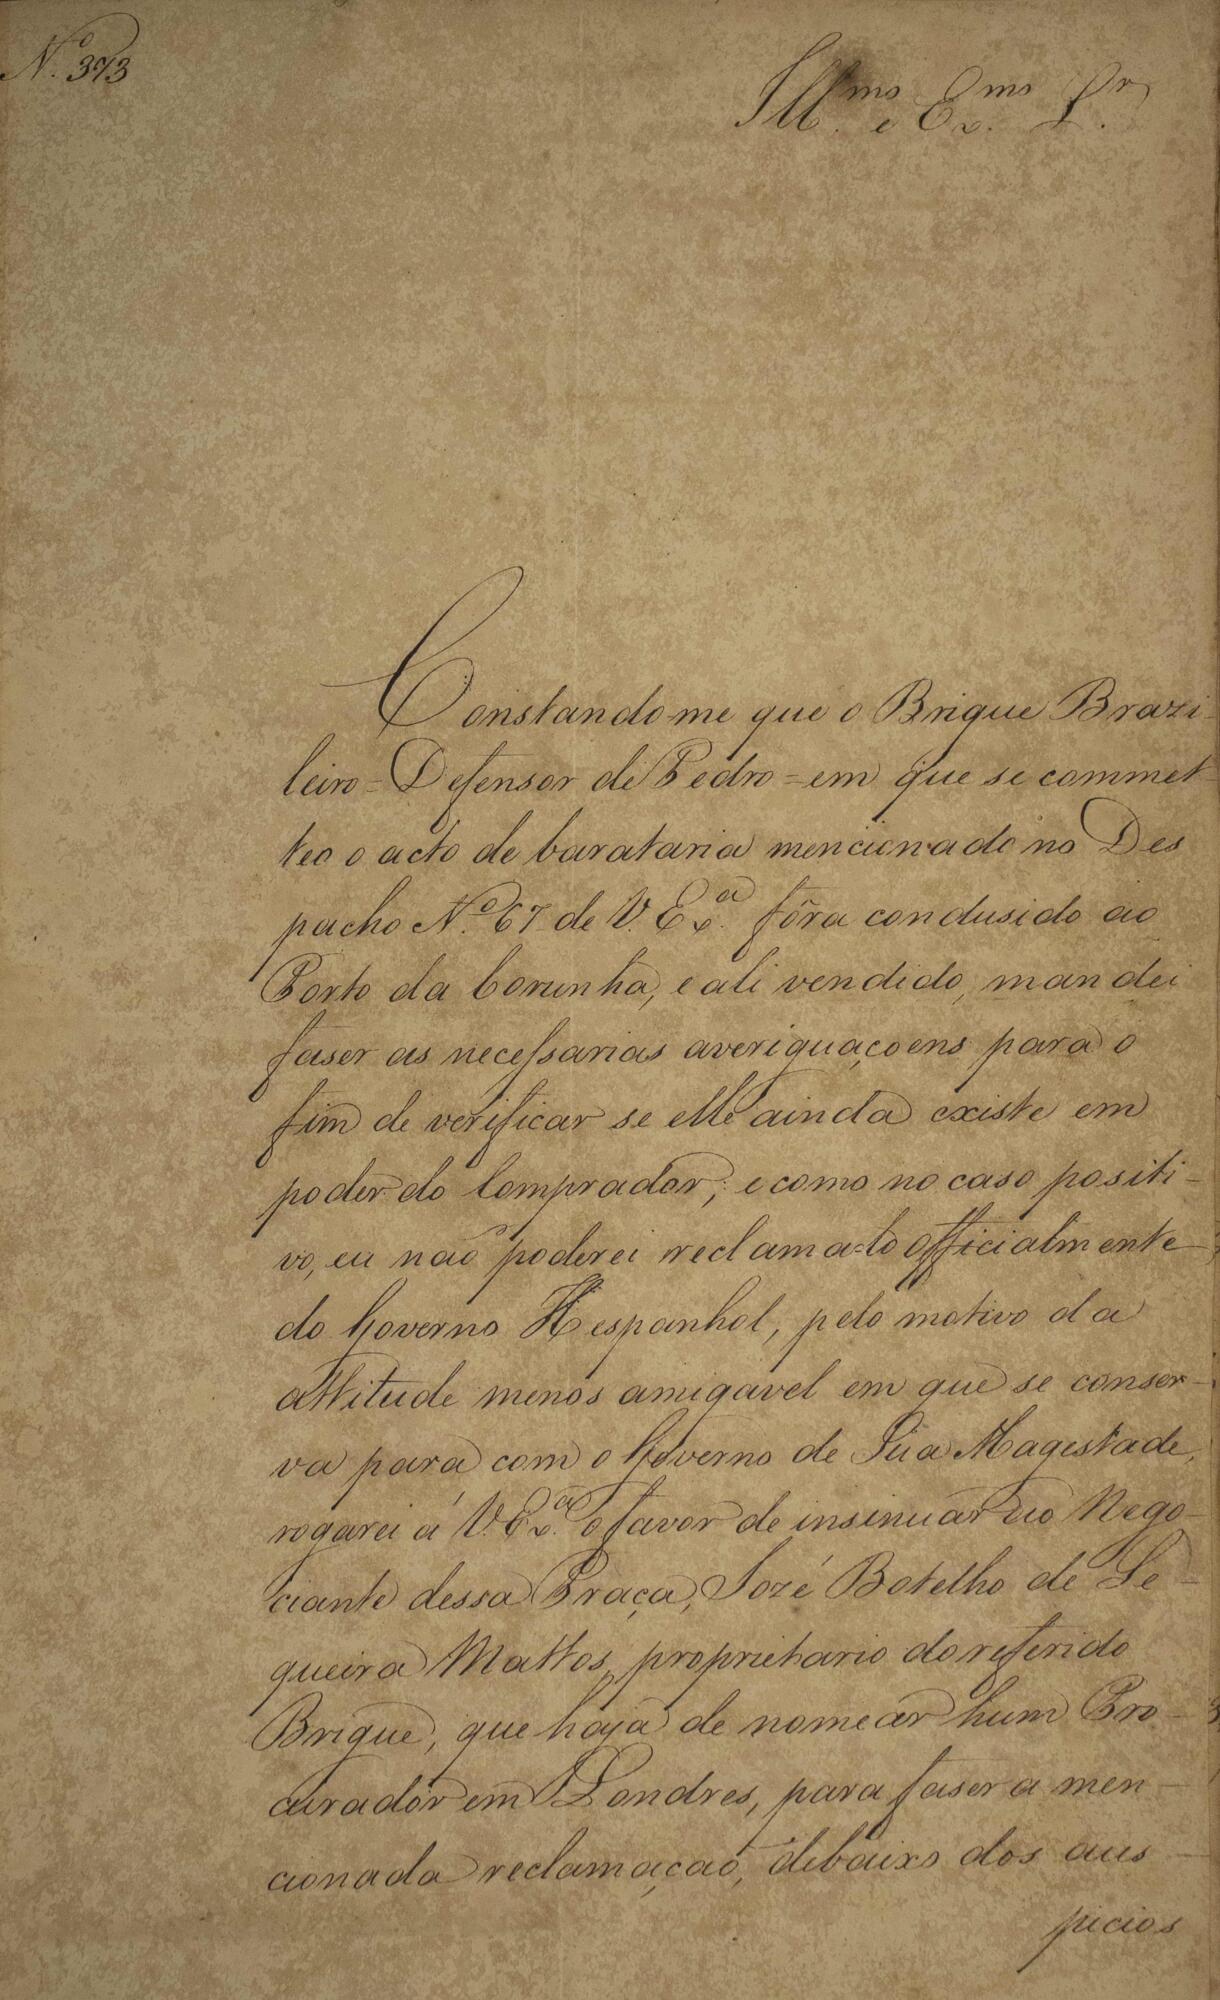 N.º 373
Ill.mo e Ex.mo Sr.
Constando-me que o Brigue Brazi-
leiro = Defensor de Pedro = em que se commet-
teo o acto de barataria mencionado no Des
pacho N.º 67 de V. Ex.ª fôra condusido ao
Porto da Corunha, e ali vendido, mandei
faser as necessarias averiguaçoens para o
fim de verificar se elle ainda existe em
poder do Comprador; e como no caso positi-
vo, eu não poderei reclama-lo officialmente
do Governo Hespanhol, pelo motivo da
attitude menos amigavel em que se conser-
va para com o Governo de Sua Magestade,
rogarei á V. Ex.ª o favor de insinuar ao Nego-
ciante dessa Praça, Jozé Botelho de Se-
queira Mattos, proprietario do referido
Brigue, que haja de nomear hum Pro-
curador em Londres, para faser a men-
cionada reclamação, debaixo dos aus-
picios